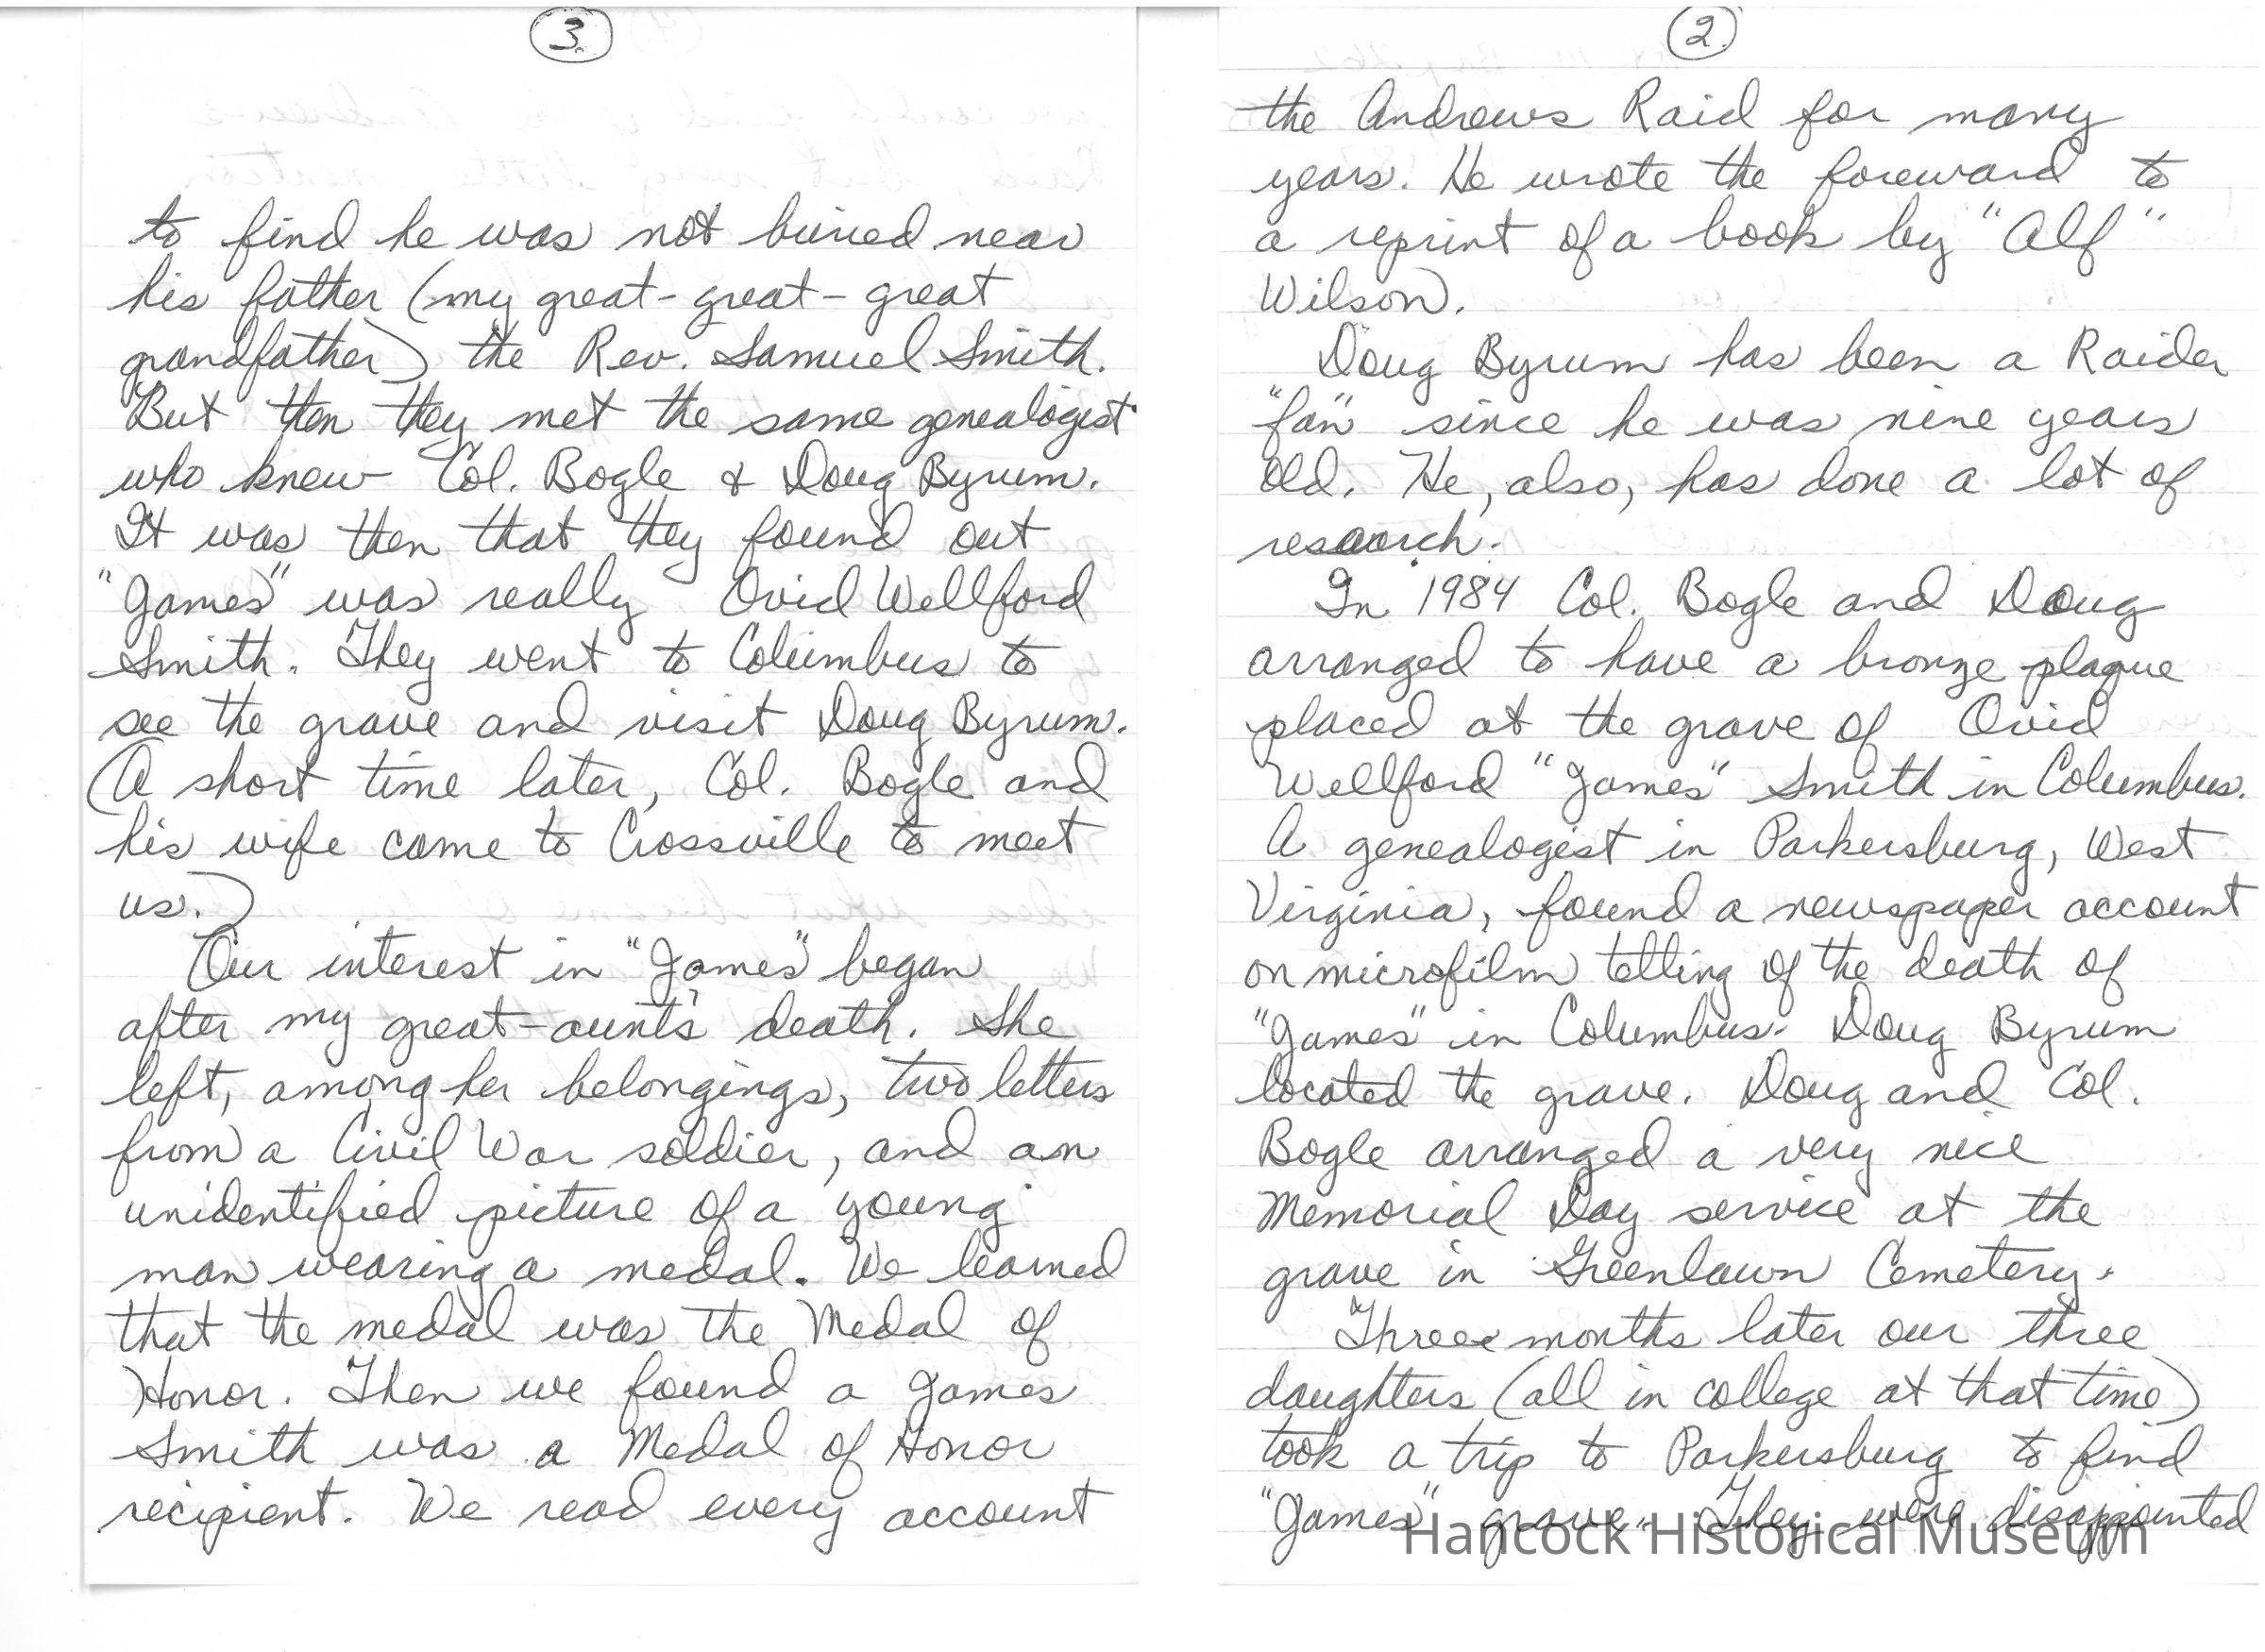 3.
to find he was not buried near
his father (my great-great-great
grandfather) the Rev. Samuel Smith.
But then they met the same genealogist
who knew Col. Bogle & Doug Byrum.
It was then that they found out
"James" was really Ovid Wellford
Smith. They went to Columbus to
see the grave and visit Doug Byrum.
(A short time later, Col. Bogle and
his wife came to Crossville to meet
us.)
Our interest in "James" began
after my great-aunt's death. She
left, among her belongings, two letters
from a Civil War soldier, and an
unidentified picture of a young
man wearing a medal. We learned
that the medal was the Medal of
Honor. Then we found a James
Smith was a Medal of Honor
recipient. We read every account
2.
the Andrews Raid for many
years. He wrote the foreward to
a reprint of a book by "Alf"
Wilson.
Doug Byrum has been a Raider
"fan" since he was nine years
old. He, also, has done a lot of
research.
In 1984 Col. Bogle and Doug
arranged to have a bronze plaque
placed at the grave of Ovid
Wellford "James" Smith in Columbus.
A genealogist in Parkersburg, West
Virginia, found a newspaper account
on microfilm telling of the death of
"James" in Columbus. Doug Byrum
located the grave. Doug and Col.
Bogle arranged a very nice
Memorial Day service at the
grave in Greenlawn Cemetery.
Three months later our three
daughters (all in college at that time)
took a trip to Parkersburg to find
"James" grave. They were disappointed
Hancock Historical Museum